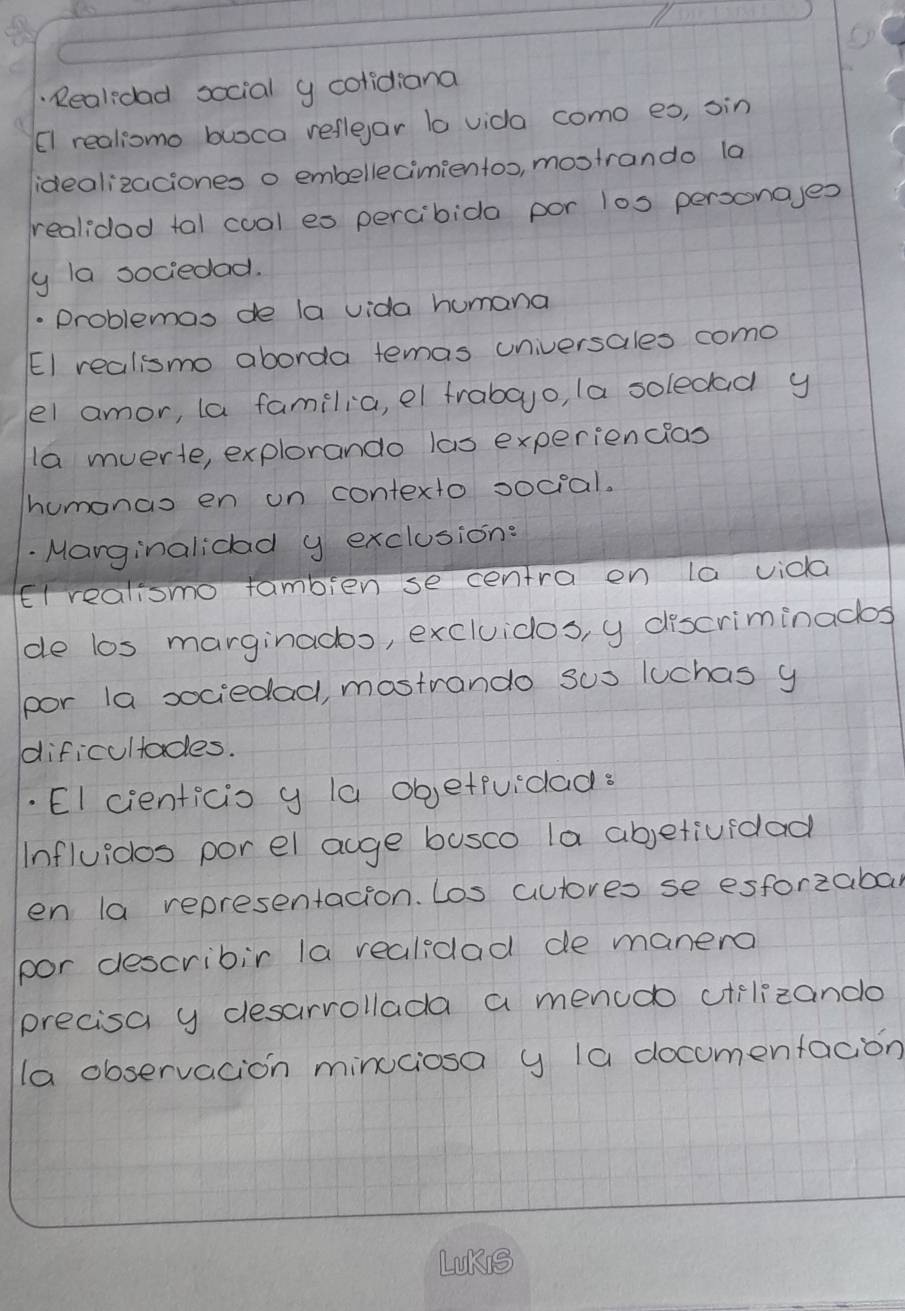 ·Realidad social y cotidiana
El realismo busca reflejar la vida como es, sin
idealizaciones o embellecimientos, mostrando la
realidad tal cual es percibida por los personajes
y la sociedad.
·Problemas de la vida humana
El realismo aborda temas universales como
el amor, la familia, el trabajo, la soledad y
la muerte, explorando las experiencias
humanas en un contexto social.
·Marginalidad y exclusión:
El realismo tambien se centra en la vida
de los marginados, excluidos, y discriminados
por la sociedad, mostrando sus luchas y
dificultades.
·El cienticis y la objetividad:
Influidos por el auge busco la abjetividad
en la representacion. Los autores se esforzaban
por describir la realidad de manera
precisa y desarrollada a menudo utilizando
la observación minuciosa y la documentación
LUKIS